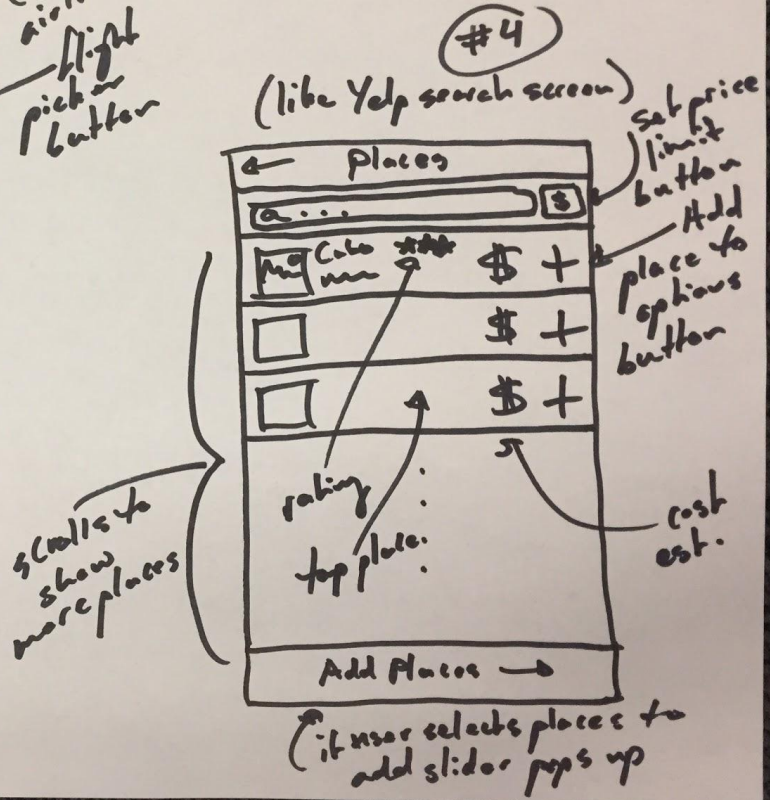 flight
pick
button
#4
(like Yelp search screen)
set price
limit
button
← Places
...
$
Add
place to
options
button
*** $ +
$ +
$ +
rating
top place
cost
est.
scrolls to
show
more places
Add Places →
if user selects places to
add slider pops up